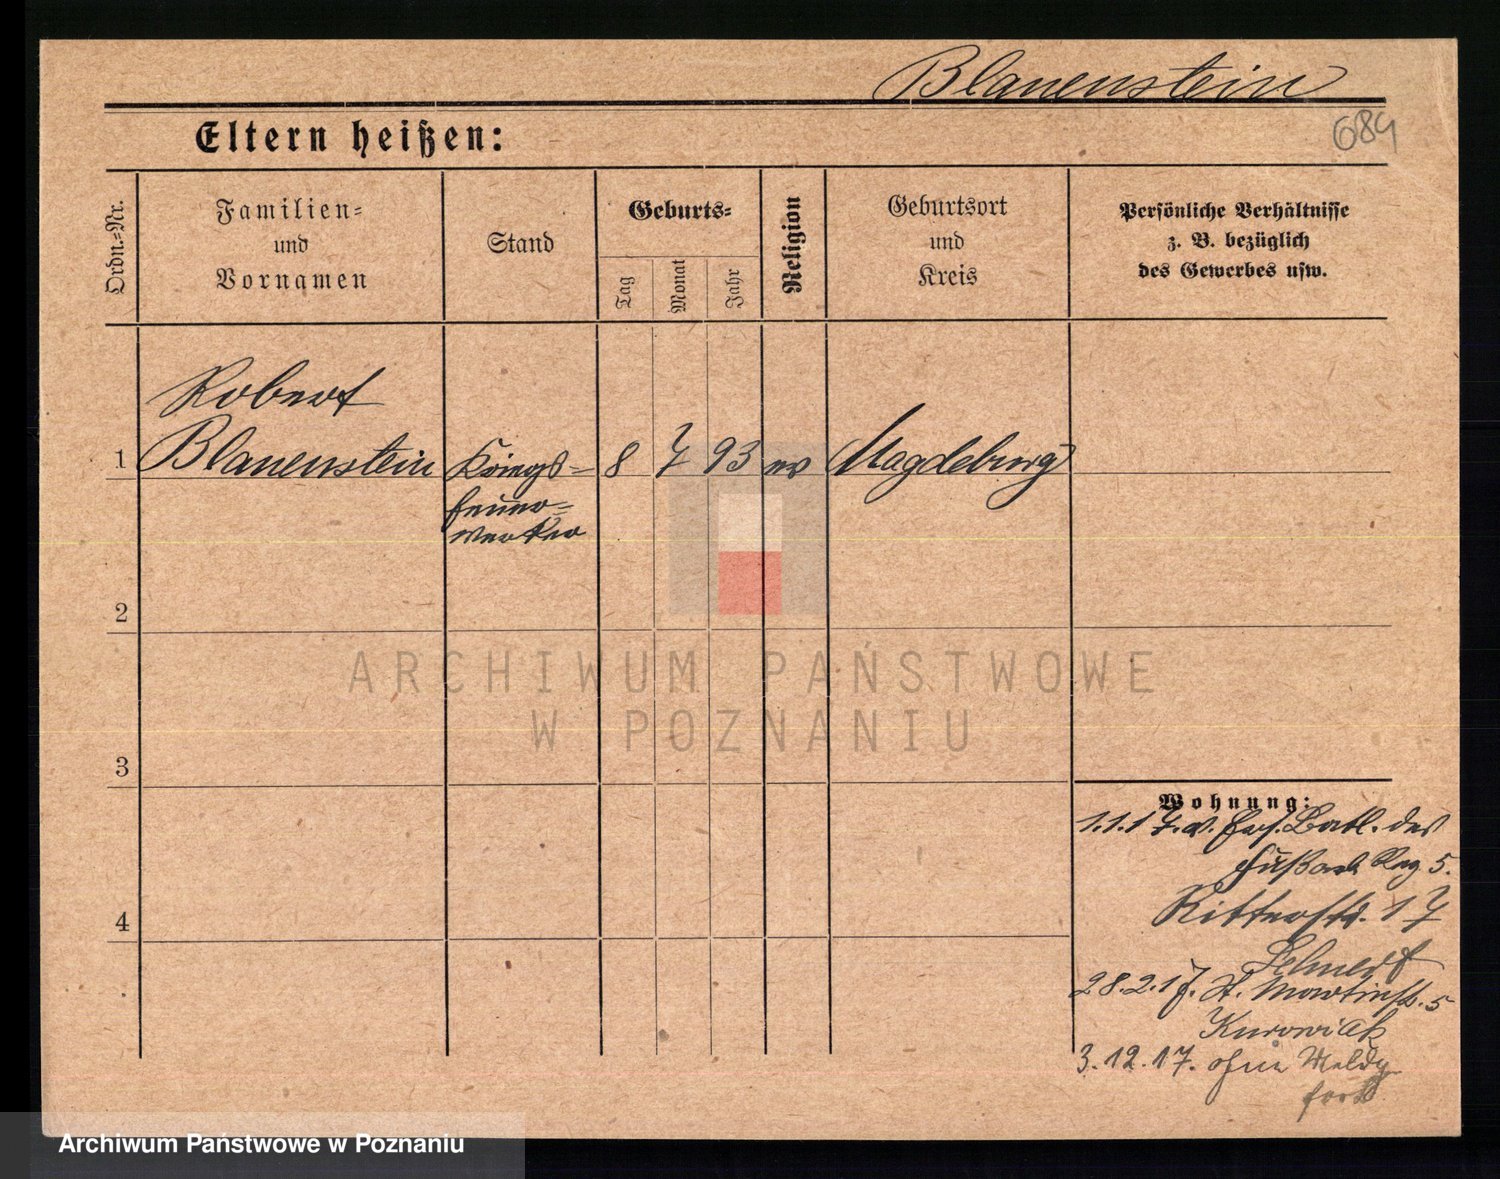 Blauenstein
Eltern heißen:
684
Ordn.-Nr.
Familien-
und
Vornamen
Stand
Geburts-
Tag
Monat
Jahr
Religion
Geburtsort
und
Kreis
Persönliche Verhältnisse
z. B. bezüglich
des Gewerbes usw.
Robert
1 Blauenstein Kriegs- 8 7 93 ev Magdeburg
feuer-
werker
2
ARCHIWUM PAŃSTWOWE
W POZNANIU
3
Wohnung:
1.1.17. v. Ers. Batl. des
Fußart Reg. 5.
4
Ritterstr. 17
Lehnert
28.2.17. St. Martinstr. 5
Kurowiak
3.12.17. ohne Meldg
fort
Archiwum Państwowe w Poznaniu